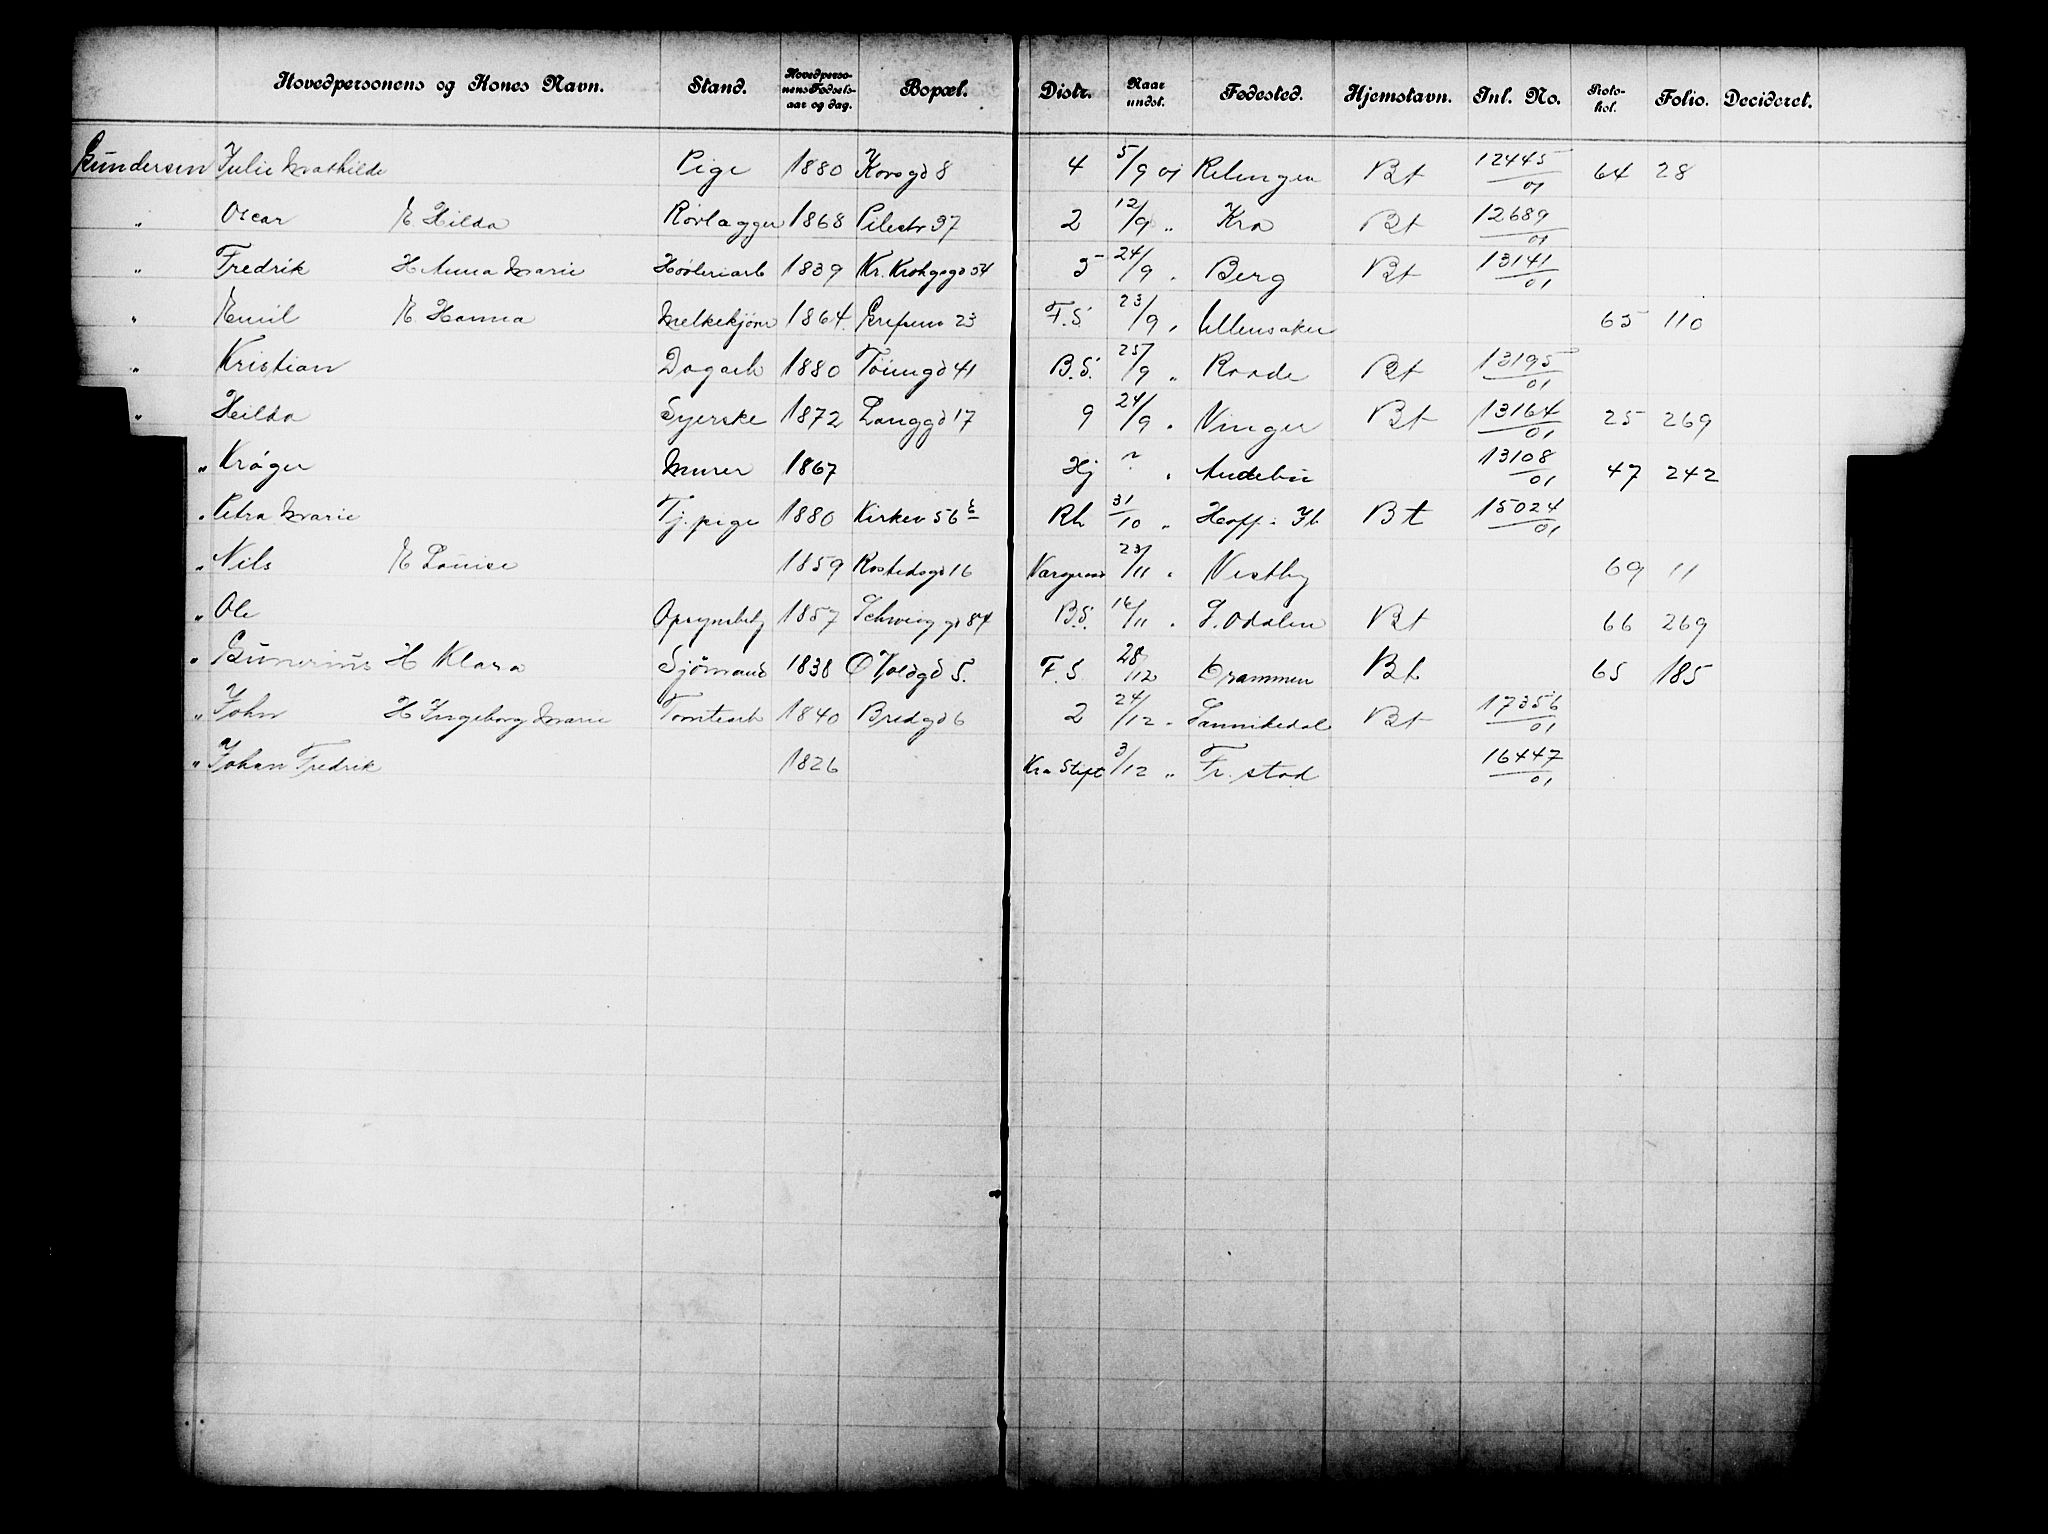 Hovedpersonens og Kones Navn. Stand. Hovedpersonens Fødselsaar og dag. Bopæl. Distr. Naar undst. Fødested. Hjemstavn. Inl. No. Protokol. Folio. Decideret.
Gundersen Julie Mathilde Pige 1880 Korsgd 8 4 5/9 01 Relingen Bt 12445/01 64 28
" Oscar E. Hilda Rørlægger 1868 Pilestr 37 2 12/9 " Kra Bt 12689/01
" Fredrik H Anna Marie Høvleriarb 1839 Kr. Krohgsgd 54 5 24/9 " Berg Bt 13141/01
" Emil E. Hanna Melkekjører 1864. Grefsenv 23 F.S. 23/9 " Ullensaker 65 110
" Kristian Dagarb 1880 Töiengd 41 B.S. 25/9 " Raade Bt 13195/01
" Hilda Syerske 1872 Langgd 17 9 24/9 " Vinger Bt 13164/01 25 269
" Krøger Murer 1867 Hj " " Andebu 13108/01 47 242
" Petra Marie Tj. pige 1880 Kirkev 56 b Rh 31/10 " Hoff i Jb Bt 15024/01
" Nils E Louise 1859 Rostedsgd 16 23/11 " Vestby 69 11
" Ole Opsynsbetj 1857 Schweigsgd 84 B.S. 16/11 " S. Odalen Bt 66 269
" Gunerius H Klara Sjömand 1838 Ø Voldgd 5. F.S 28/12 Drammen Bt 65 185
" John H Ingeborg Marie Tomtearb 1840 Bredgd 6 2 24/12 " Sannikedal Bt 17356/01
" Johan Fredrik 1826 Kra Stift 3/12 " Fr. stad 16447/01